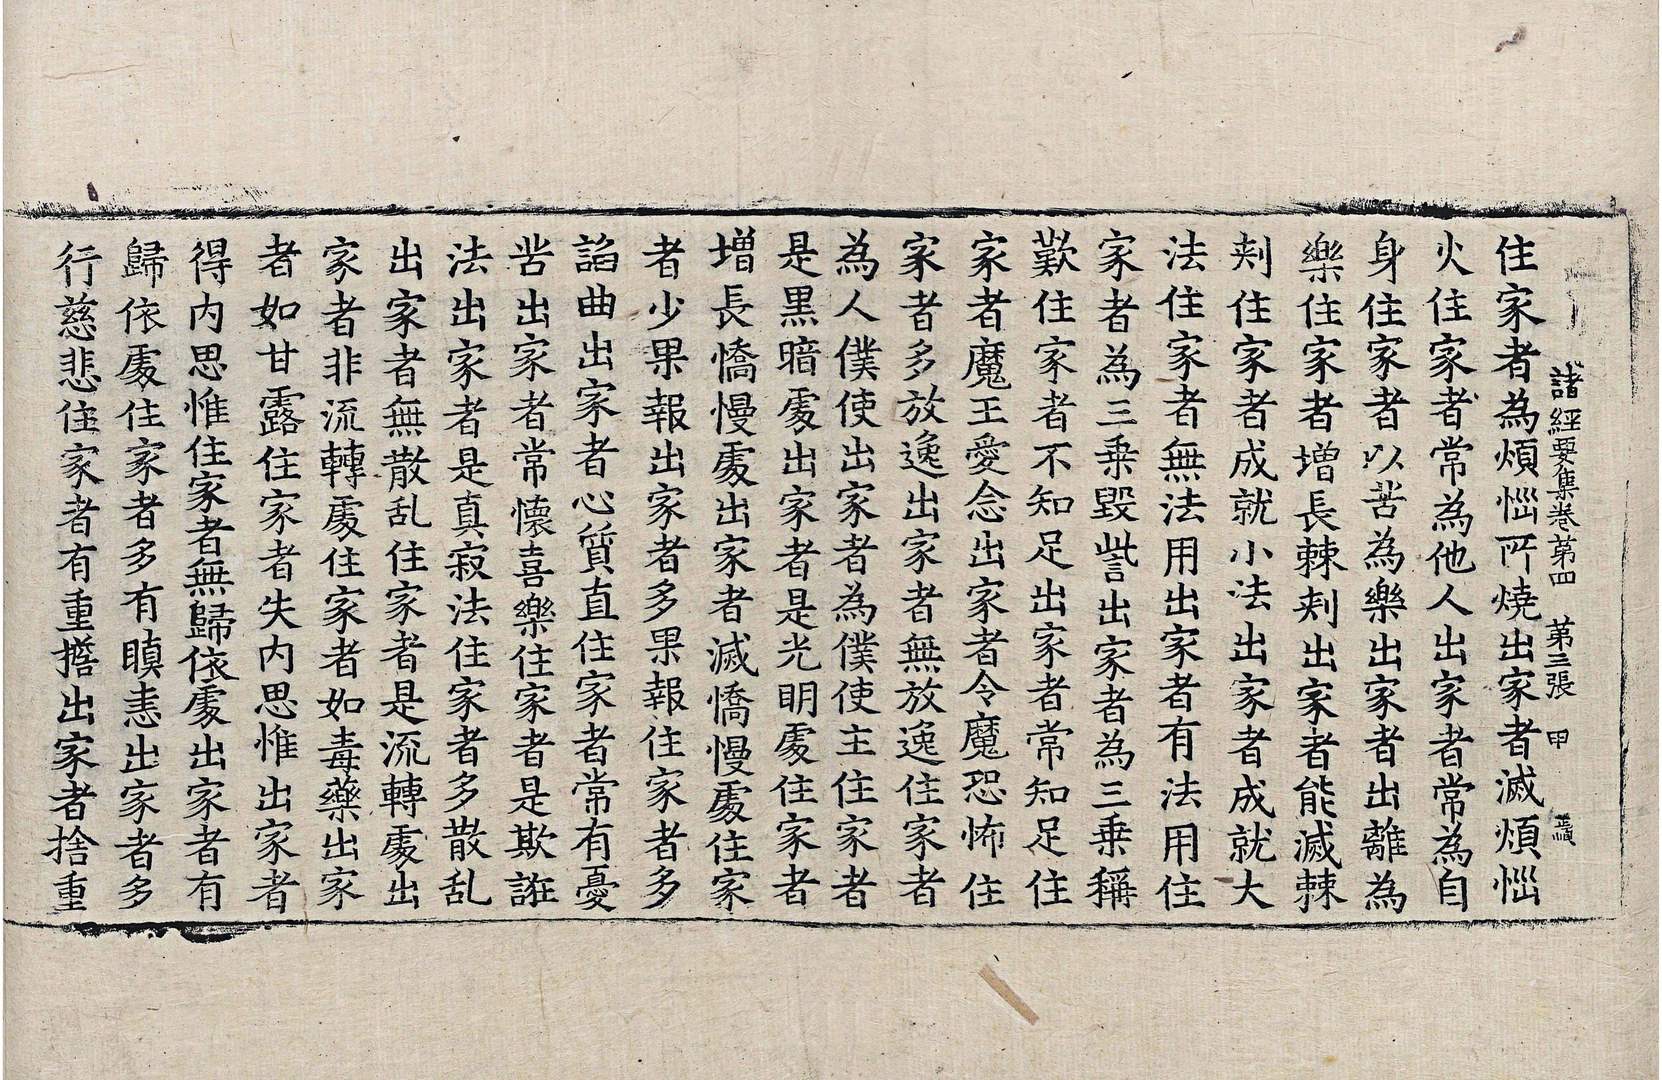 諸經要集卷第四 第三張 甲
住家者為煩惱所燒出家者滅煩惱
火住家者常為他人出家者常為自
身住家者以苦為樂出家者出離為
樂住家者增長棘刾出家者能滅棘
刾住家者成就小法出家者成就大
法住家者無法用出家者有法用住
家者為三乗毀呰出家者為三乗稱
歎住家者不知足出家者常知足住
家者魔王愛念出家者令魔恐怖住
家者多放逸出家者無放逸住家者
為人僕使出家者為僕使主住家者
是黒暗處出家者是光明處住家者
增長憍慢處出家者滅憍慢處住家
者少果報出家者多果報住家者多
諂曲出家者心質直住家者常有憂
苦出家者常懷喜樂住家者是欺誑
法出家者是真寂法住家者多散乱
出家者無散乱住家者是流轉處出
家者非流轉處住家者如毒藥出家
者如甘露住家者失内思惟出家者
得内思惟住家者無歸依處出家者有
歸依處住家者多有瞋恚出家者多
行慈悲住家者有重擔出家者捨重